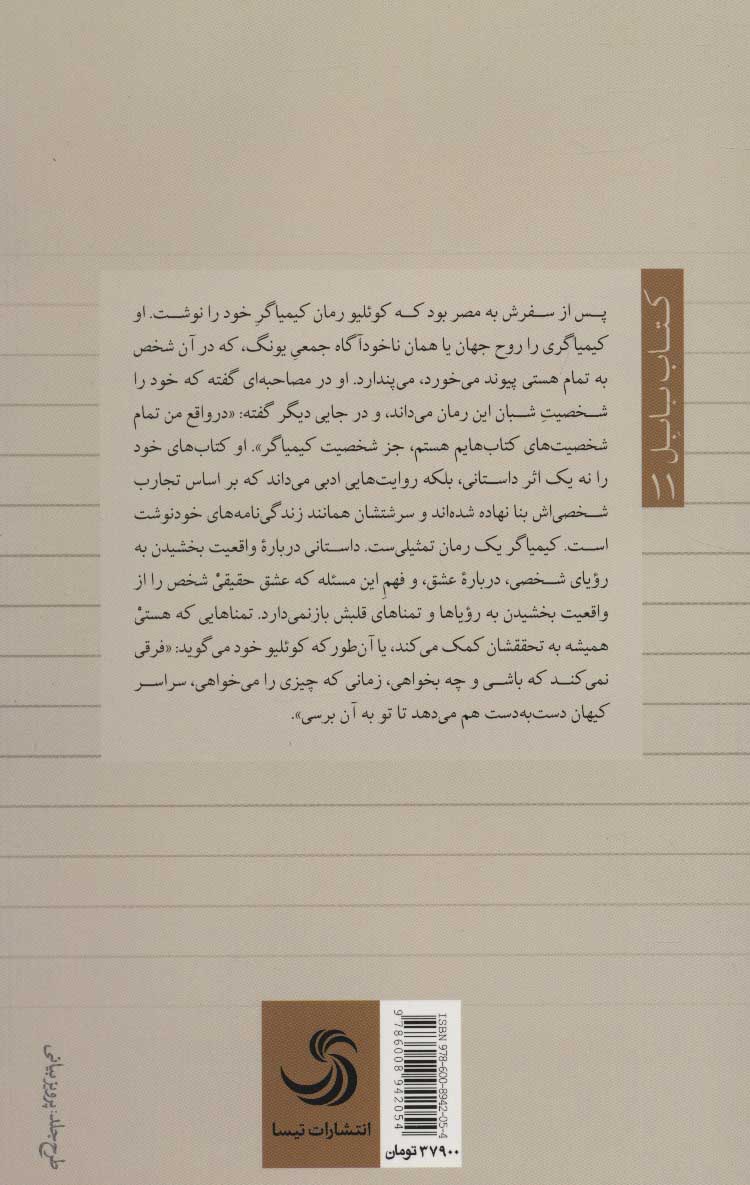 کتاب بابِل
پس از سفرش به مصر بود که کوئلیو رمان کیمیاگرِ خود را نوشت. او
کیمیاگری را روح جهان یا همان ناخودآگاه جمعیِ یونگ، که در آن شخص
به تمام هستی پیوند می‌خورد، می‌پندارد. او در مصاحبه‌ای گفته که خود را
شخصیتِ شبان این رمان می‌داند، و در جایی دیگر گفته: «درواقع من تمام
شخصیت‌های کتاب‌هایم هستم، جز شخصیت کیمیاگر». او کتاب‌های خود
را نه یک اثر داستانی، بلکه روایت‌هایی ادبی می‌داند که بر اساس تجارب
شخصی‌اش بنا نهاده شده‌اند و سرشتشان همانند زندگی‌نامه‌های خودنوشت
است. کیمیاگر یک رمان تمثیلی‌ست. داستانی دربارهٔ واقعیت بخشیدن به
رؤیای شخصی، دربارهٔ عشق، و فهمِ این مسئله که عشق حقیقیْ شخص را از
واقعیت بخشیدن به رؤیاها و تمناهای قلبش بازنمی‌دارد. تمناهایی که هستیْ
همیشه به تحققشان کمک می‌کند، یا آن‌طورکه کوئلیو خود می‌گوید: «فرقی
نمی‌کند که باشی و چه بخواهی، زمانی که چیزی را می‌خواهی، سراسر
کیهان دست‌به‌دست هم می‌دهد تا تو به آن برسی».
انتشارات تیسا
ISBN 978-600-8942-05-4
9 786008 942054
۳۷۹۰۰ تومان
طرح جلد: پرویز بیانی